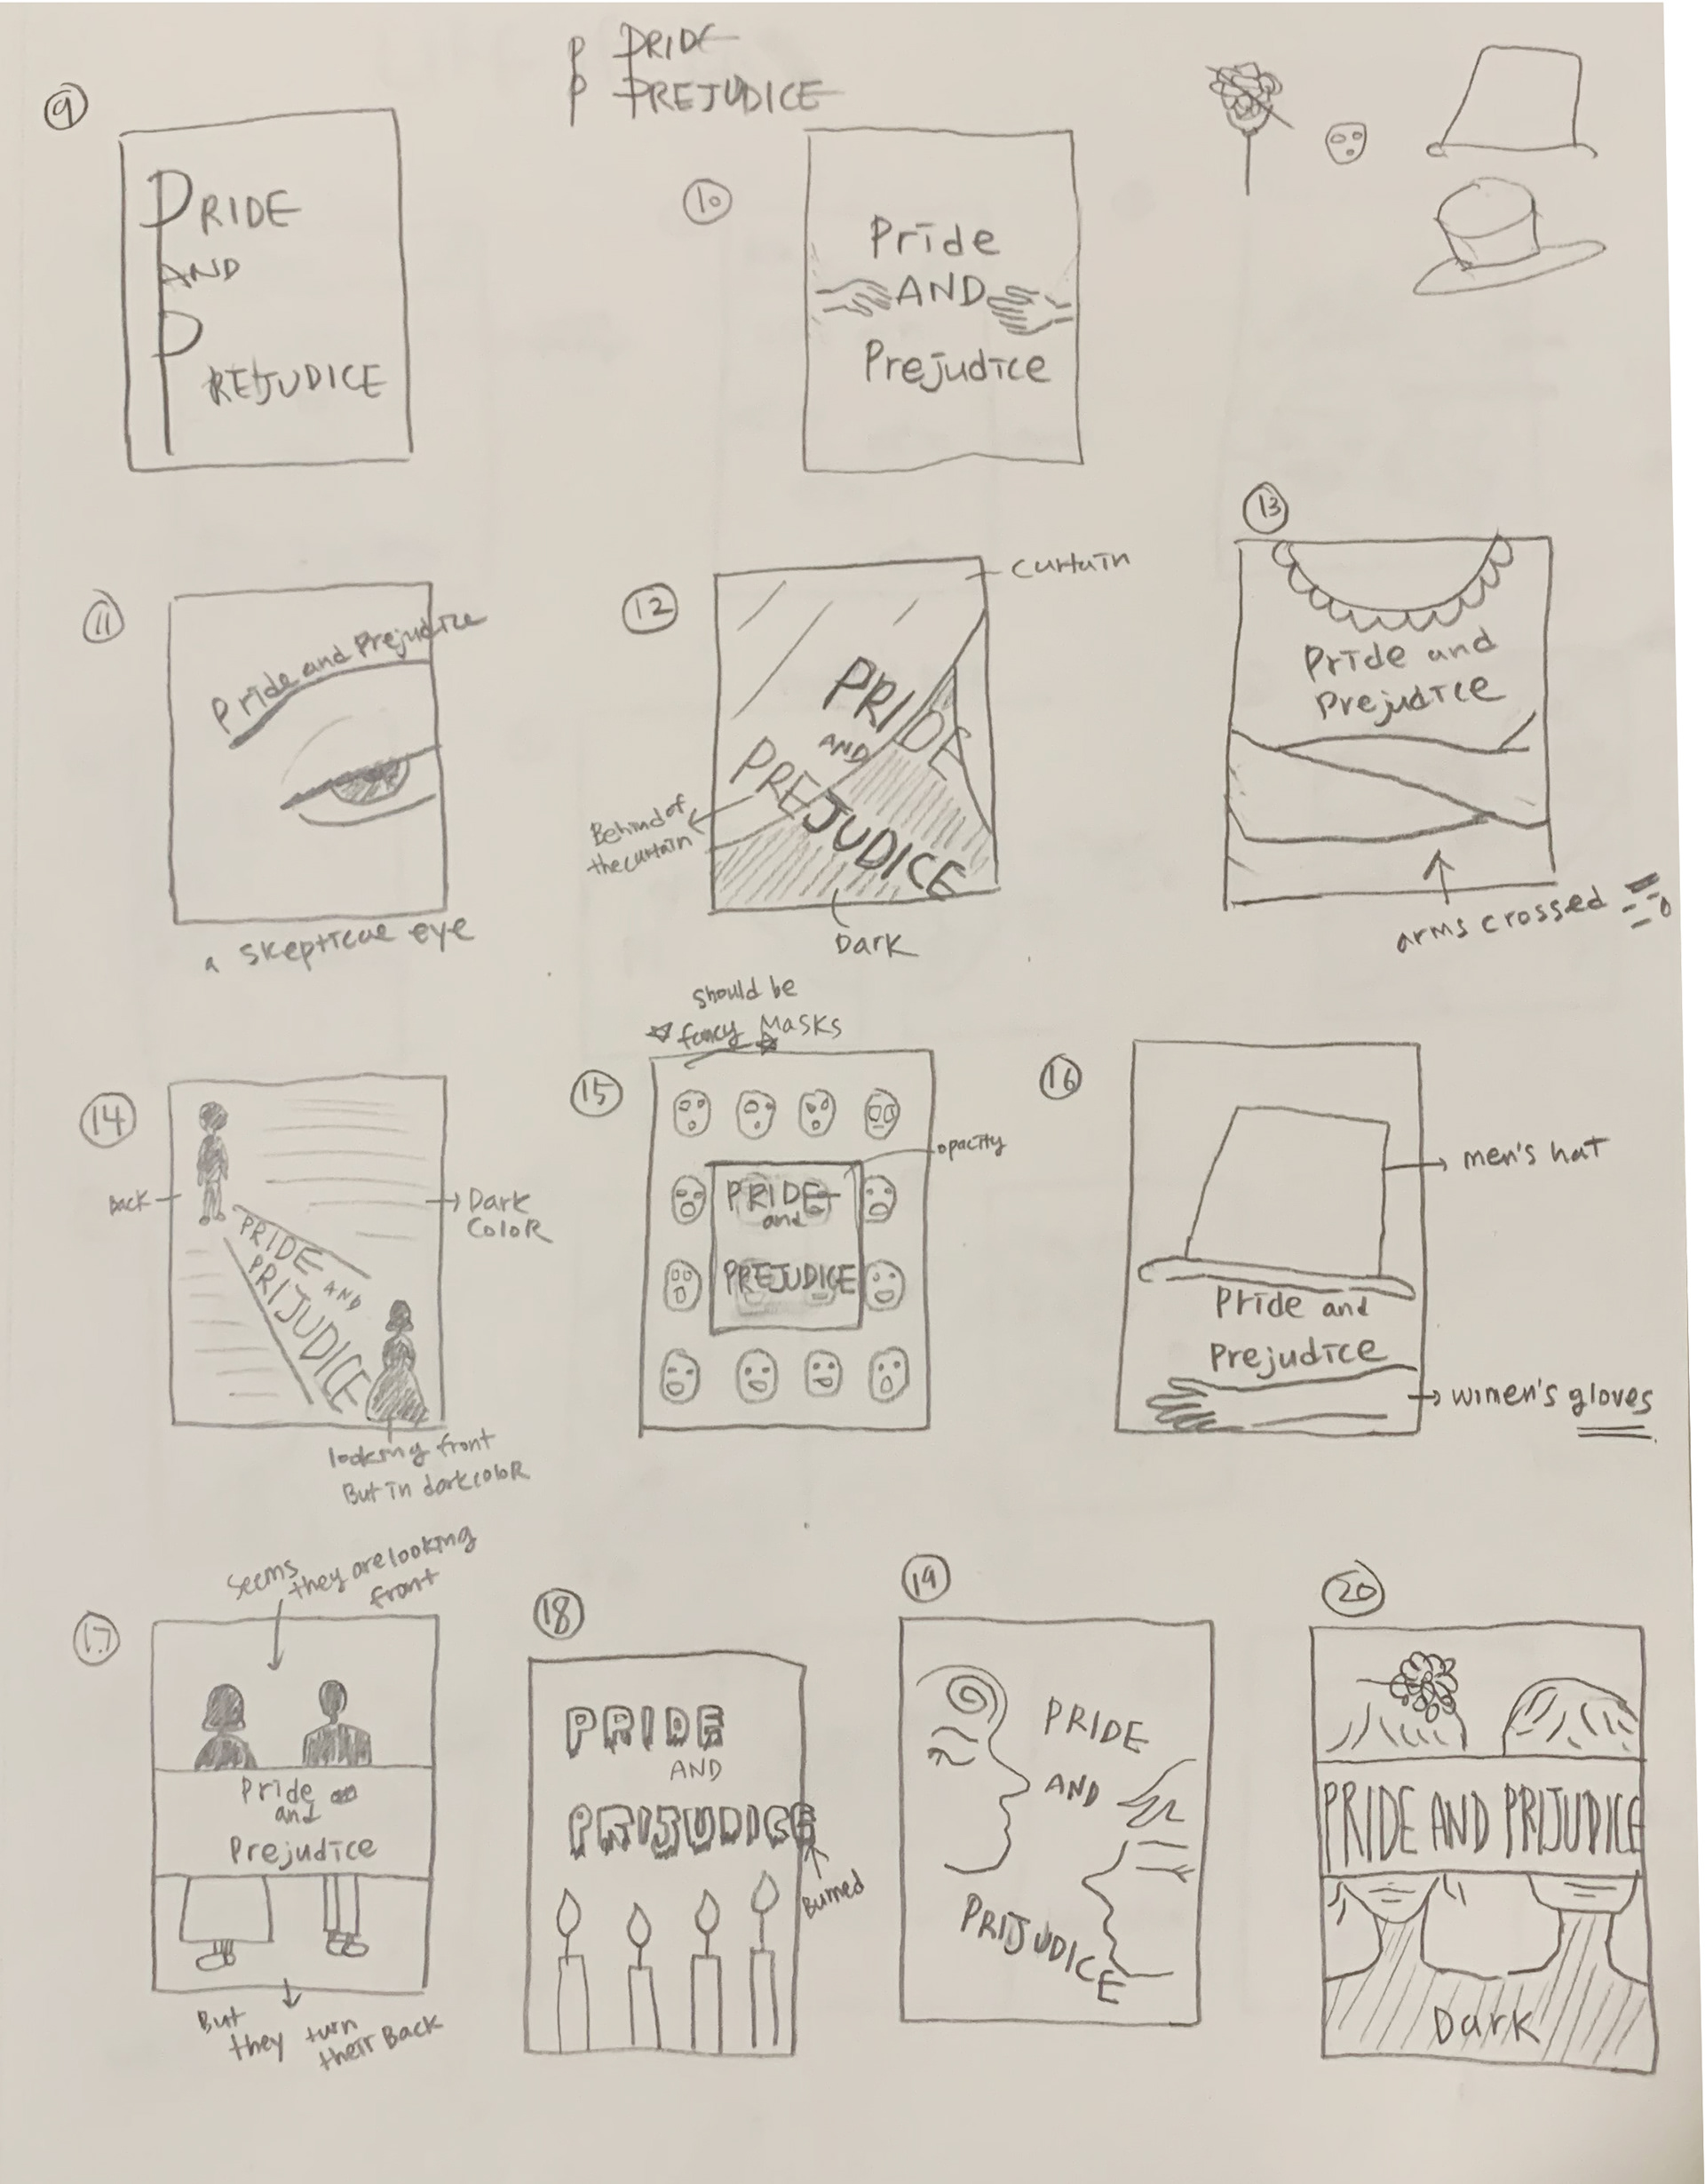 P PRIDE
P PREJUDICE
9
PRIDE
AND
PREJUDICE
10
Pride
AND
Prejudice
11
Pride and Prejudice
a skepticue eye
12
curtain
PRIDE
AND
PREJUDICE
Behind of
the curtain
Dark
13
Pride and
Prejudice
arms crossed
14
Back
Dark
Color
PRIDE AND
PRIJUDICE
looking front
But in dark color
15
should be
fancy Masks
opacity
PRIDE
and
PREJUDICE
16
men's hat
Pride and
Prejudice
wimen's gloves
17
Seems they are looking
front
Pride
and
Prejudice
But they turn
their Back
18
PRIDE
AND
PRIJUDICE
Burned
19
PRIDE
AND
PRIJUDICE
20
PRIDE AND PRIJUDICE
Dark